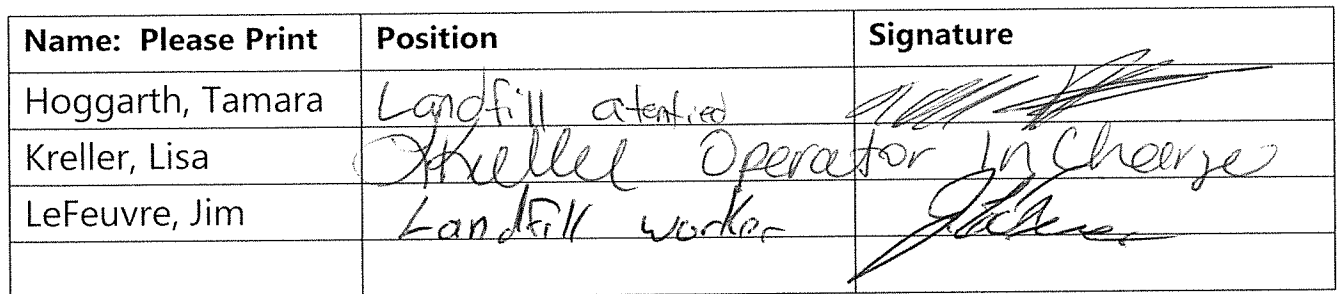 Name: Please Print Position Signature
Hoggarth, Tamara Landfill atentied
Kreller, Lisa LKreller Operator In Charge
LeFeuvre, Jim Landfill worker